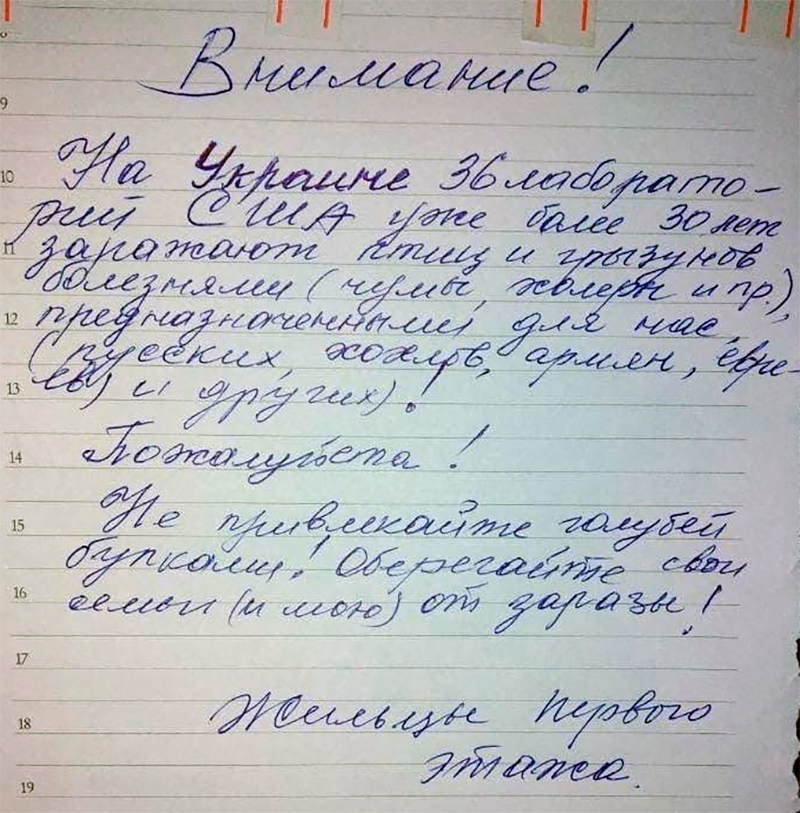 Внимание!
9
10 На Украине 36 лаборато-
рий США уже боле 30 лет
11 заражают птиц и грызунов
болезнями (чумы, холеры и пр.),
12 предназначенными для нас,
(русских, хохлов, армян, евре-
13 ев) и других)!
14 Пожалуйста!
15 Не привлекайте голубей
булками! Оберегайте свои
16 семьи (и мою) от заразы!
17
18 Жильцы первого
этажа.
19